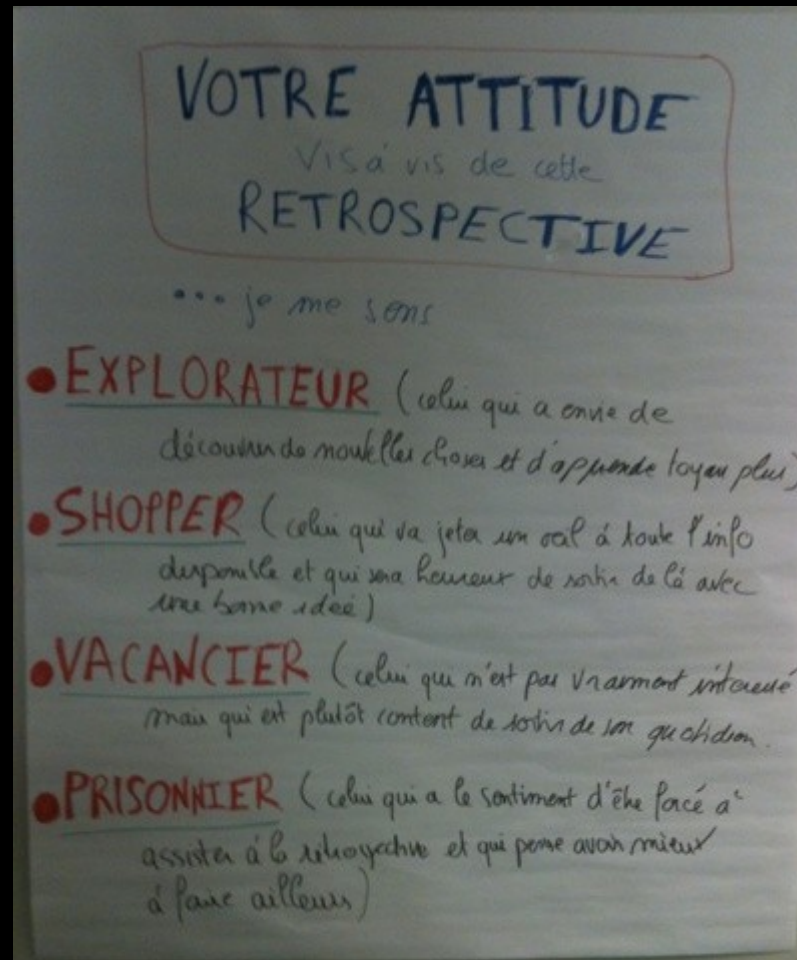 VOTRE ATTITUDE
Vis à vis de cette
RETROSPECTIVE
... je me sens
• EXPLORATEUR (celui qui a envie de
découvrir de nouvelles choses et d'apprendre toujours plus)
• SHOPPER (celui qui va jeter un œil à toute l'info
disponible et qui sera heureux de sortir de là avec
une bonne idée)
• VACANCIER (celui qui n'est pas vraiment intéressé
mais qui est plutôt content de sortir de son quotidien.
• PRISONNIER (celui qui a le sentiment d'être forcé à
assister à la rétrospective et qui pense avoir mieux
à faire ailleurs)